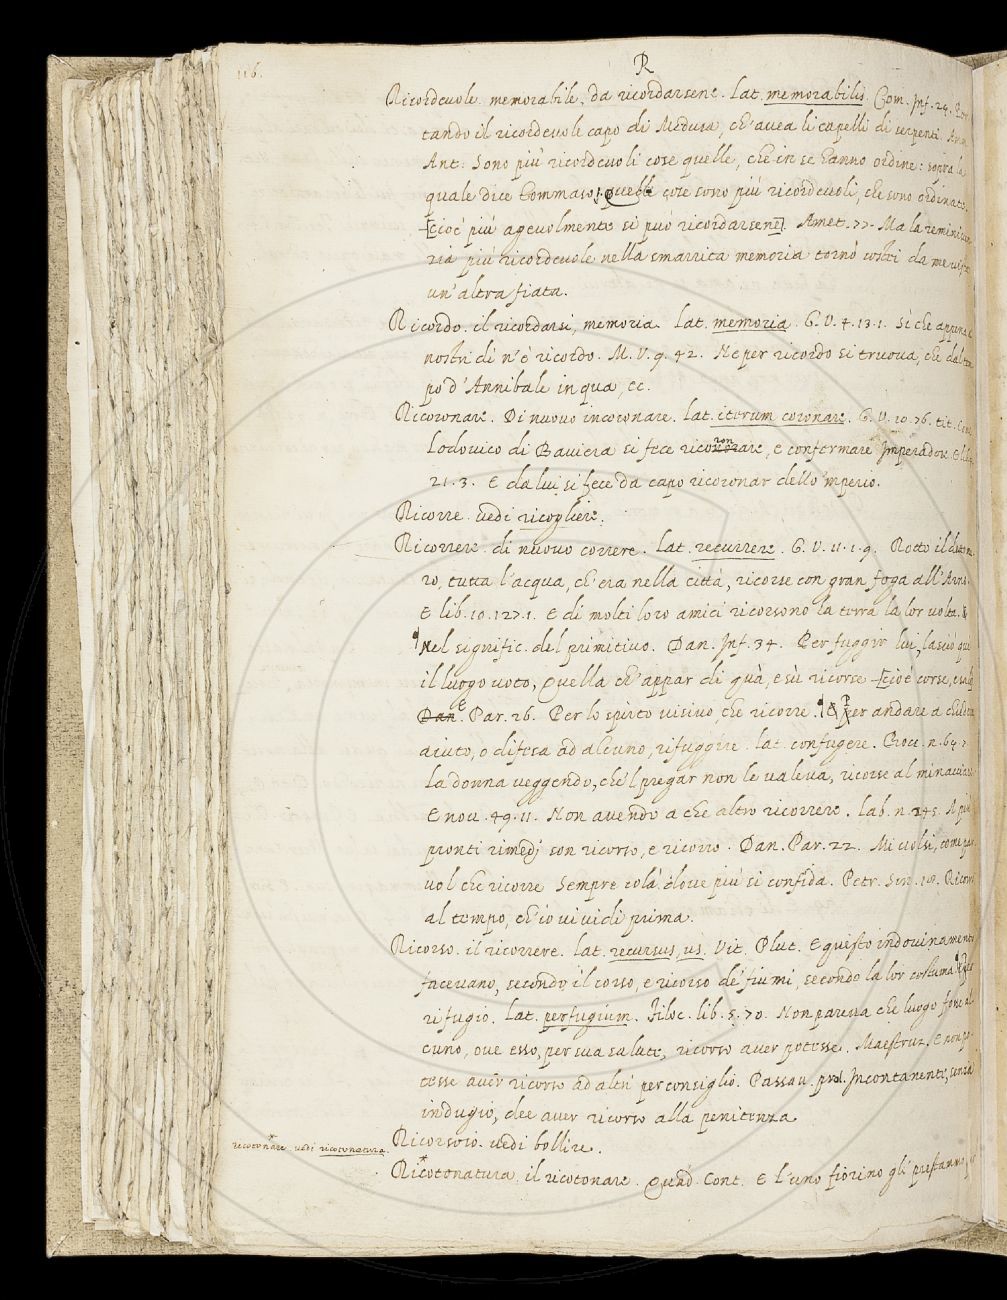 116.
R
Ricordevole. memorabile, da ricordarsene. Lat. memorabilis. Com. Inf. 24.
tando il ricordevole capo di Medusa, ch'avea li capelli di serpenti. Amm.
Ant. Sono più ricordevoli cose quelle, che in se hanno ordine: sopra la
quale dice Tommaso: Quelle cose sono più ricordevoli, che sono ordinate.
[cioè più agevolmente si può ricordarsene]. Amet. 77. Ma la reminiscen
zia più ricordevole nella smarrita memoria tornò costei da me vista
un'altra fiata.
Ricordo. il ricordarsi, memoria. Lat. memoria. G. V. 4. 13. 1. Sì che appena a'
nostri dì n'è ricordo. M. V. 9. 42. Ne per ricordo si truova, che dal tem
po d'Annibale in qua, ec.
Ricoronare. Di nuovo incoronare. Lat. iterum coronare. G. V. 10. 76. tit. Come
Lodovico di Baviera si fece ricoronare, e confermare Imperadore. E lib.
21. 3. E da lui si fece da capo ricoronar dello 'mperio.
Ricorre. vedi ricogliere.
Ricorrere. di nuovo correre. Lat. recurrere. G. V. 11. 1. 9. Rotto il detto mu
ro, tutta l'acqua, ch'era nella città, ricorse con gran foga all'Arno.
E lib. 10. 127. 1. E di molti loro amici ricorsono la terra la lor volta.
Nel signific. del primitivo. Dan. Inf. 34. Per fuggir lui, lasciò qui
il luogo voto, Quella ch'appar di quà, e sù ricorse [cioè corse,
Dan. E Par. 26. Per lo spirto visivo, che ricorre. Per andare a chieder
aiuto, o difesa ad alcuno, rifuggire. lat. confugere. Bocc. n. 69. 7
La donna veggendo, che'l pregar non le valeva, ricorse al minacciare
E nov. 49. 11. Non avendo a che altro ricorrere. Lab. n. 245. A più
pronti rimedj son ricorso, e ricorro. Dan. Par. 22. Mi volsi, come par
vol che ricorre Sempre colà dove più si confida. Petr. Son. 18. Ricorro
al tempo, ch'io vi vidi prima.
Ricorso. il ricorrere. lat. recursus, us. Vit. Plut. E questo indovinamento
facevano, secondo il corso, e ricorso de' fiumi, secondo la lor costuma. Per
rifugio. Lat. perfugium. Filoc. lib. 5. 70. Non pareva che luogo fosse al
cuno, ove esso, per sua salute, ricorso aver potesse. Maestruz. E non po
tesse aver ricorso ad altri per consiglio. Passav. prol. Incontanente, senza
indugio, dee aver ricorso alla penitenza
Ricorsoio. vedi bollire.
ricotonare vedi ricotonatura.
Ricotonatura. il ricotonare. Quad. Cont. E l'uno fiorino gli prestanno,